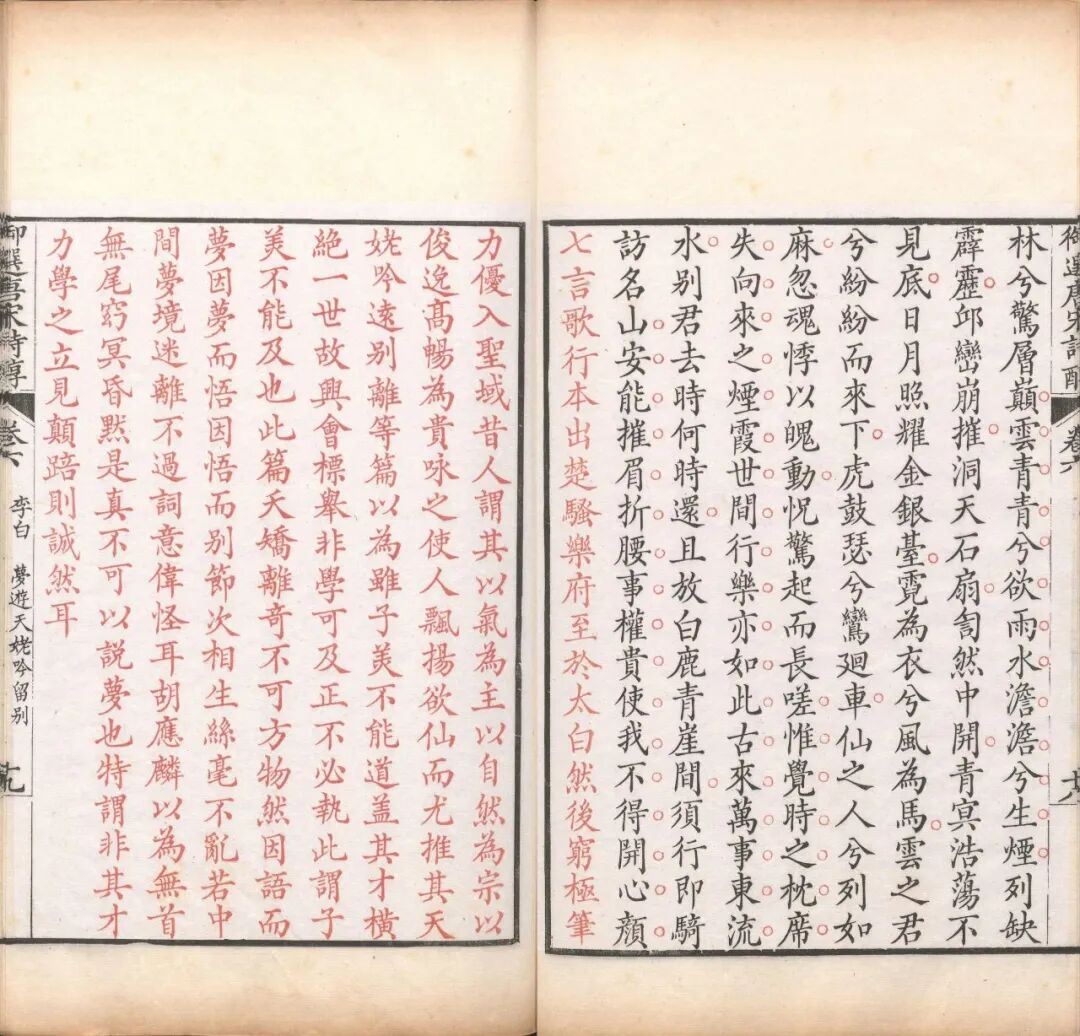 御選唐宋詩醇 卷六 十八
林兮驚層巔雲青青兮欲雨水澹澹兮生煙列缺
霹靂邱巒崩摧洞天石扇訇然中開青冥浩蕩不
見底日月照耀金銀臺霓為衣兮風為馬雲之君
兮紛紛而來下虎鼓瑟兮鸞廻車仙之人兮列如
麻忽魂悸以魄動怳驚起而長嗟惟覺時之枕席
失向來之煙霞世間行樂亦如此古來萬事東流
水別君去時何時還且放白鹿青崖間須行即騎
訪名山安能摧眉折腰事權貴使我不得開心顏
七言歌行本出楚騷樂府至於太白然後窮極筆
力優入聖域昔人謂其以氣為主以自然為宗以
俊逸髙暢為貴咏之使人飄揚欲仙而尤推其天
姥吟遠別離等篇以為雖子美不能道盖其才橫
絶一世故興會標舉非學可及正不必執此謂子
美不能及也此篇夭矯離奇不可方物然因語而
夢因夢而悟因悟而别節次相生絲毫不亂若中
間夢境迷離不過詞意偉怪耳胡應麟以為無首
無尾窈冥昏黙是真不可以説夢也特謂非其才
力學之立見顛踣則誠然耳
御選唐宋詩醇 卷六 李白 夢遊天姥吟留别 十九